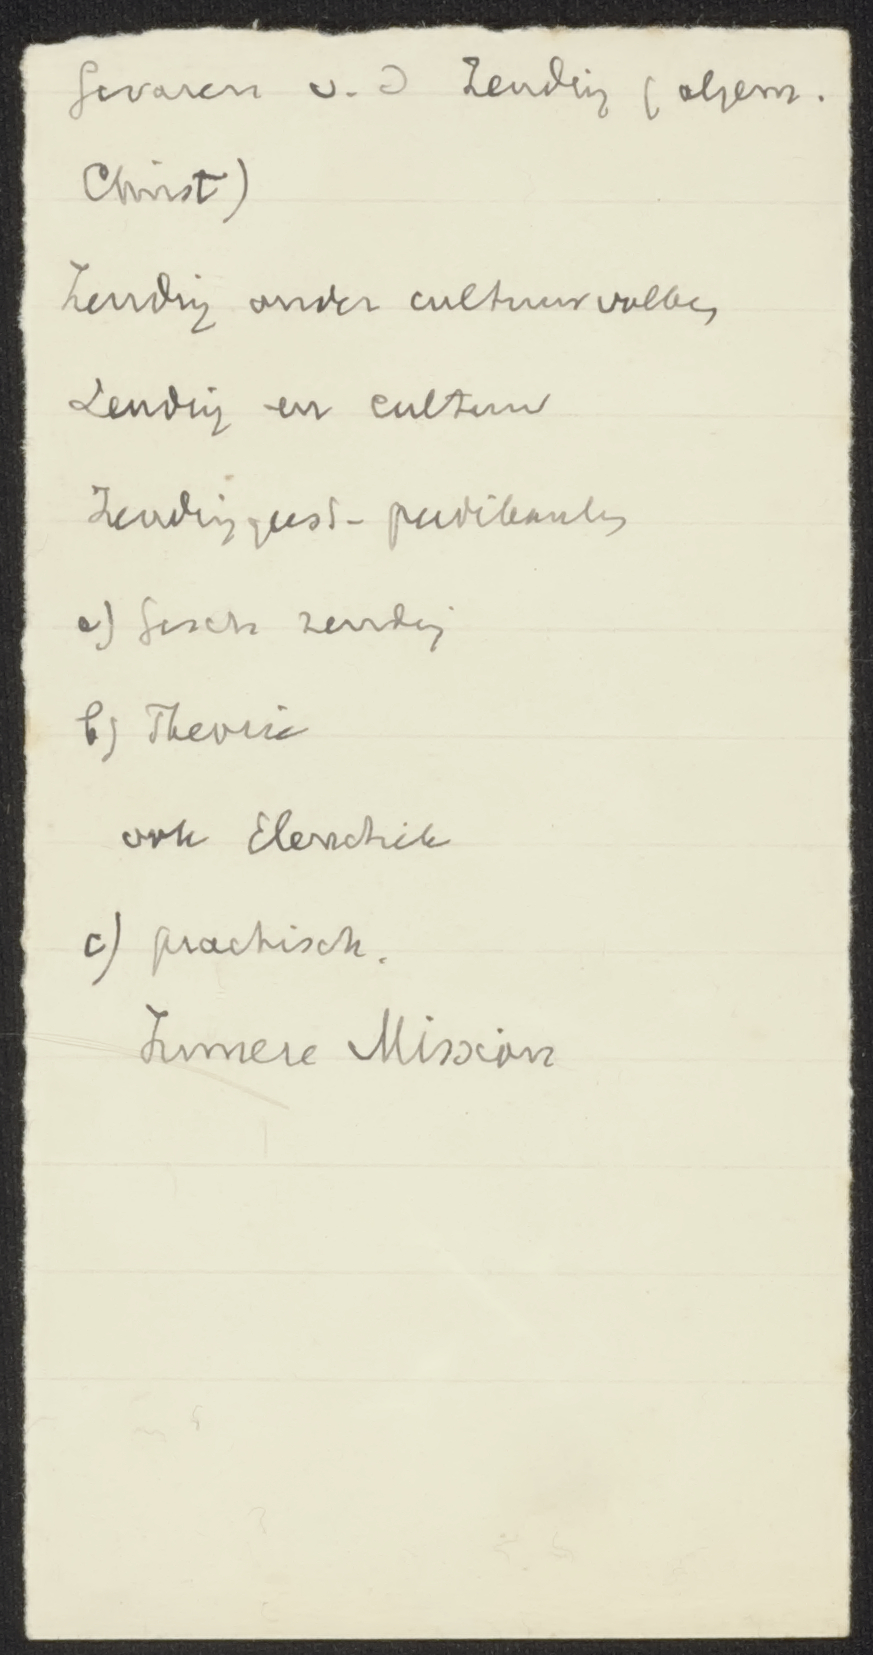 Gevaren v. d Zending (algem.
Christ)
Zending onder cultuurvolken
Zending en cultuur
Zending
a) Gesch zending
b) Theorie
ook Elenchtik
c) practisch.
Innere Mission